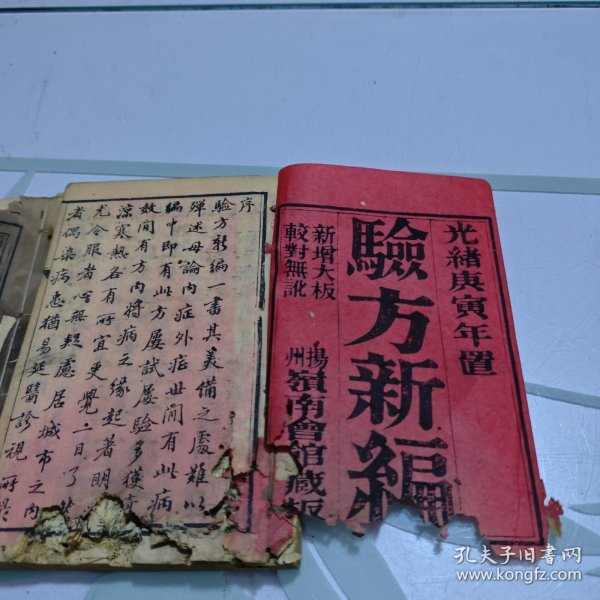 光緒庚寅年置
驗方新編
新增大板
較對無訛
揚州
嶺南會館藏板
序
驗方新編一書其美備之處難以
殫述毋論內症外症毋間有此病
編中即有此方屢試屢驗多獲奇
效間有方內將病之緣起著明
涼寒熱各有所宜更覺一目了然
尤合服者必無疑慮居城市之內
者偶染病恙猶易延醫診視
孔夫子旧书网
www.kongfz.com